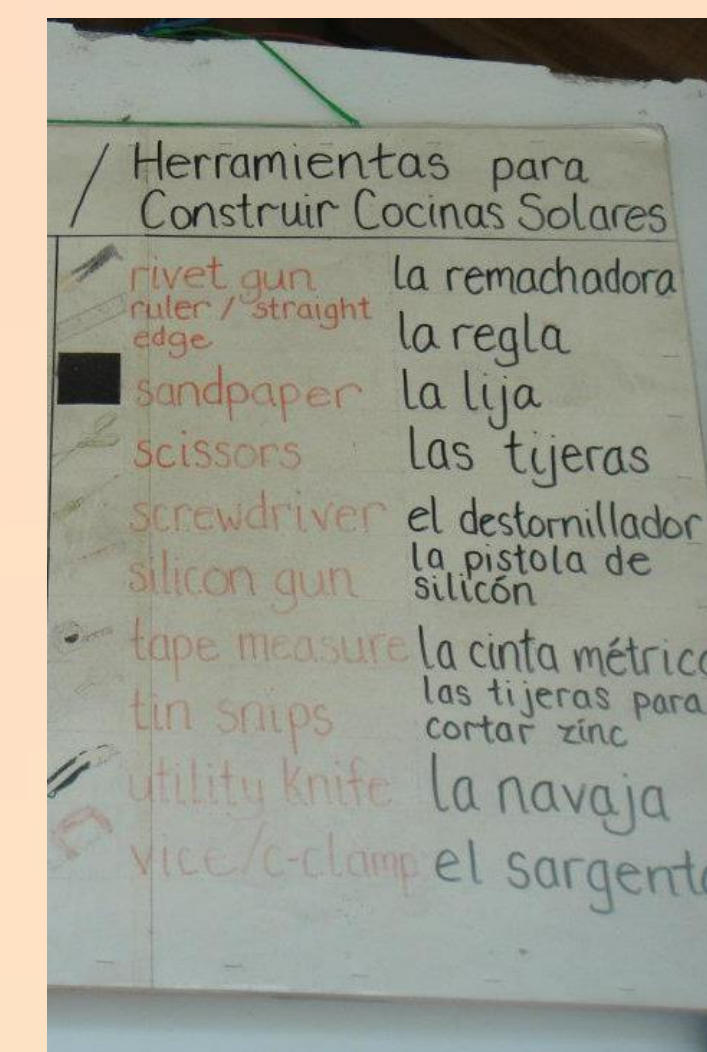 / Herramientas para
Construir Cocinas Solares
rivet gun la remachadora
ruler / straight
edge la regla
sandpaper la lija
scissors las tijeras
screwdriver el destornillador
silicon gun la pistola de
silicón
tape measure la cinta métrica
tin snips las tijeras para
cortar zinc
utility knife la navaja
vice/c-clamp el sargento